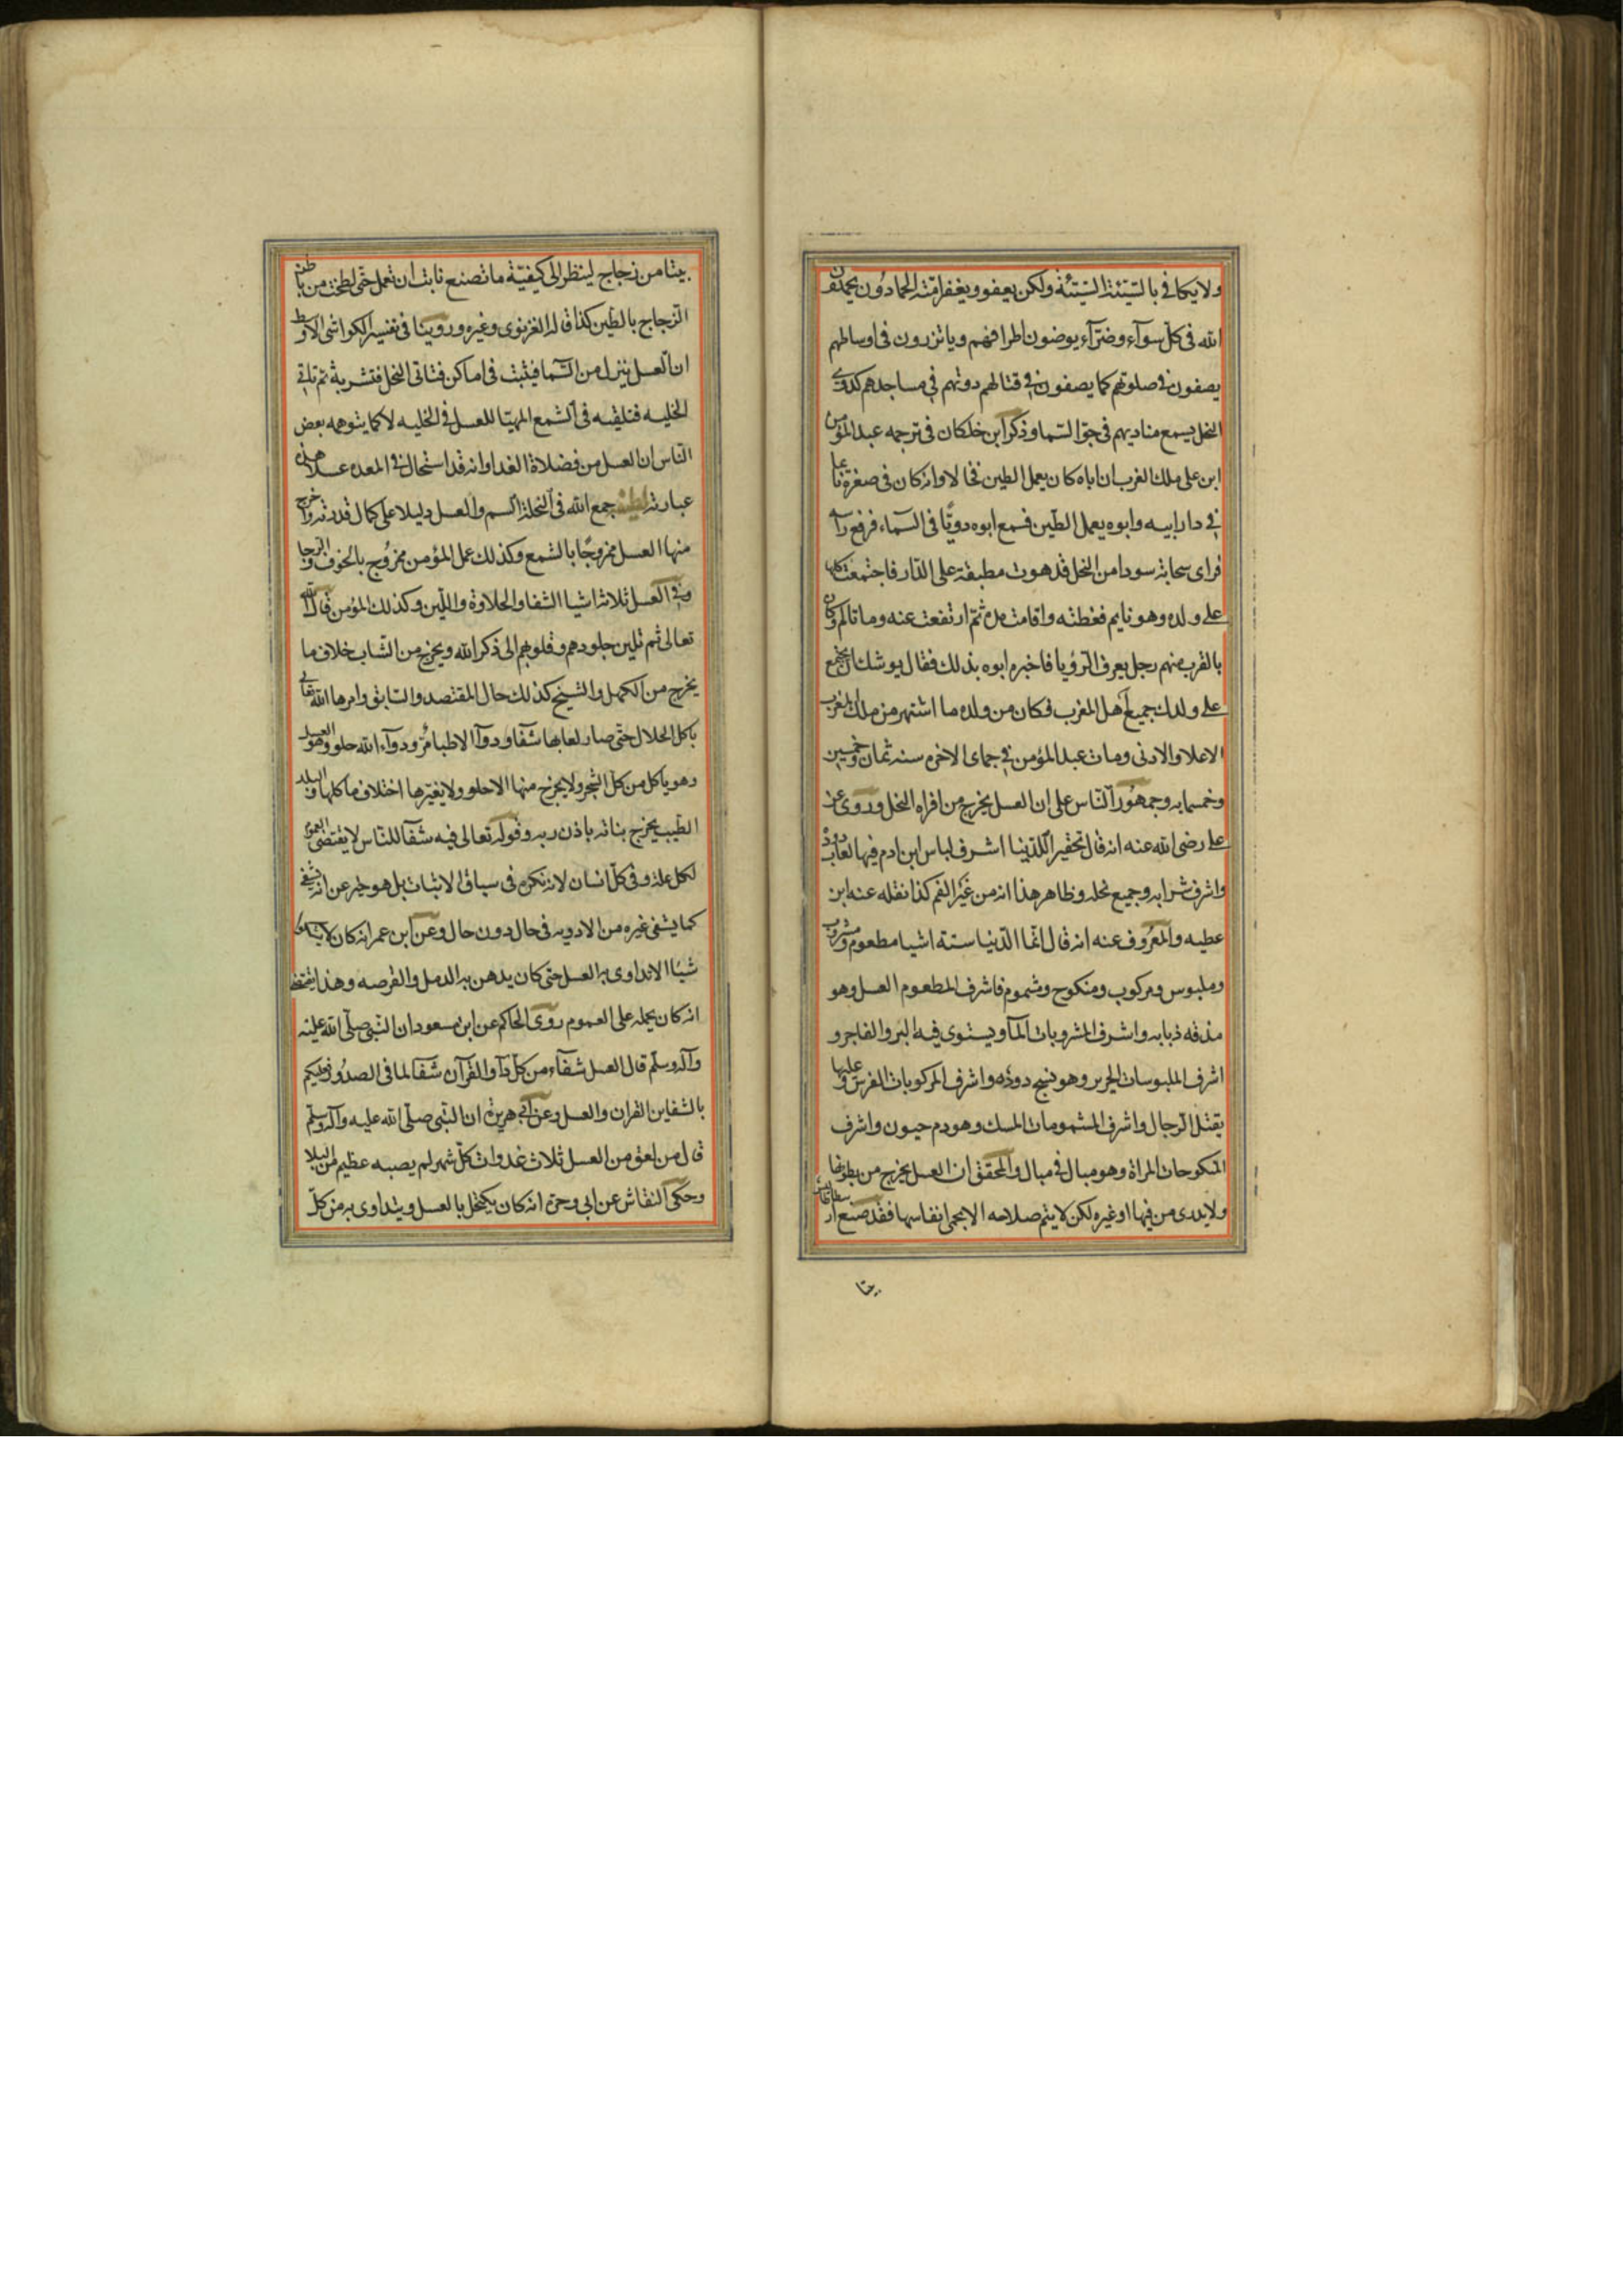 ولا يكافي بالسّيّئة السّيّئة ولكن يعفو ويغفر امّته الحمادون يحمدون
الله فى كلّ سرآء وضرّآء يوضون اطرافهم وياتزرون فى اوساطهم
يصفون فى صلوتهم كما يصفون فى قتالهم دوتهم فى مساجدهم كدوى
النحل يسمع مناديهم فى جوّ السّما وذكر ابن خلكان فى ترجمه عبد المؤمن
ابن على ملك الغرب ان اباه كان يعمل الطين فخالا وانه كان فى صغره نائما
فى دار ابيه وابوه يعمل الطّين فسمع ابوه دويّا فى السّماء فرفع راسه
فراى سحابة سودا من النحل قد هوت مطبقة على الدّار فاجتمعت كلها
على ولده وهو نايم فغطته واقامت مدة ثمّ ارتفعت عنه وما تالم وكان
بالقرب منهم رجل يعرف الزّؤيا فاخبره ابوه بذلك فقال يوشك ان يجتمع
على ولدك جميع اهل المغرب فكان من ولده ما اشتهر من ملك المغرب
الاعلا والادنى ومات عبد المؤمن فى جماى الاخره سنه ثمان وخمسين
وخمسمايه وجمهُور النّاس على ان العسل يخرج من افواه النحل وروى عن
على رضى الله عنه انه قال تحقيرا للدّنيا اشرف لباس ابن ادم فيها لعاب دودة
واشرف شرابه رجيع نحله وظاهر هذا انه من غير الفم كذا نقله عنه ابن
عطيه والمعرُوف عنه انه قال انّما الدّنيا ستة اشيا مطعوم ومشروب
وملبوس ومركوب ومنكوح ومشموم فاشرف المطعوم العسل وهو
مذقه ذبابه واشرف المشروبات المآ ويستوى فيه البر والفاجر و
اشرف الملبوسات الحرير وهو نسج دودَه واشرف المركوبات الفرس وعليها
يقتل الرّجال واشرف المشمومات المسك وهو دم حيون واشرف
المنكوحات المراة وهو مبال فى مبال والمحقق ان العسل يخرج من بطونها
ولا يدرى من فيها او غيره لكن لا يتم صلاحه الا بحمى انفاسها فقد صنع ارسطاطاليس
بيتا
بيتا من زجاج لينظر الى كيفيّة ما تصنع فابت ان تعمل حتّى لطخت من باطنه
الزّجاج بالطّين كذا قاله الغزنوى وغيره وروينا فى تفسير الكواشى الاوسط
ان العسل ينزل من السّما فيثبت فى اماكن فتاتى النحل فتشربه ثم تاتى
الخليه فتلقيه فى الشمع المهيّا للعسل فى الخليه لا كما يتوهمه بعض
النّاس ان العسل من فضلاة الغدا وانه قد استحال فى المعده عسلا هذه
عبارته لطيفة جمع الله فى النحلة السم والعسل دليلا على كمال قدرته واخرج
منها العسل ممزوجًا بالشمع وكذلك عمل المؤمن ممزُوج بالخوف والرّجا
وفى العسل ثلاثة اشيا الشفا والحلاوة واللّين وكذلك المؤمن قال الله
تعالى ثم تلين جلودهم وقلوبهم الى ذكر الله ويخرج من الشّاب خلاف ما
يخرج من الكهل والشيخ كذلك حال المقتصد والسّابق وامرها الله تعالى
باكل الحلال حتّى صار لعابها شفآ ودوآ الاطبا مُرّ ودوآء الله حلو وهو العسل
وهو ياكل من كل الشجر ولا يخرج منها الا حلو ولا يغيّرها اختلاف ماكلها والبلد
الطّيب يخرج بناته باذن ربه وقوله تعالى فيه شفآ للنّاس لا يقتضى العموم
لكل علة وفى كلّ انسان لانه نكرة فى سياق الاثبات بل هو خبر عن انه يشفى
كما يشفى غيره من الادويه فى حال دون حال وعن ابن عمر انه كان لا يشكو
شيًا الا تداوى بالعسل حتى كان يدهن به الدمل والقرصه وهذا يقتضى
انه كان يحمله على العموم روى الحاكم عن ابن مسعود ان النّبى صلّى الله عليه
وآله وسلّم قال العسل شفآء من كلّ دآ والقرآن شفآ لما فى الصدُور فعليكم
بالشفاين القران والعسل وعن ابى هريرة ان النّبى صلّى الله عليه وآله وسلّم
قال من لعق من العسل ثلاث غدوات كلّ شهر لم يصبه عظيم من البلا
وحكى النقاش عن ابى وجرة انه كان يكتحل بالعسل ويتداوى به من كلّ